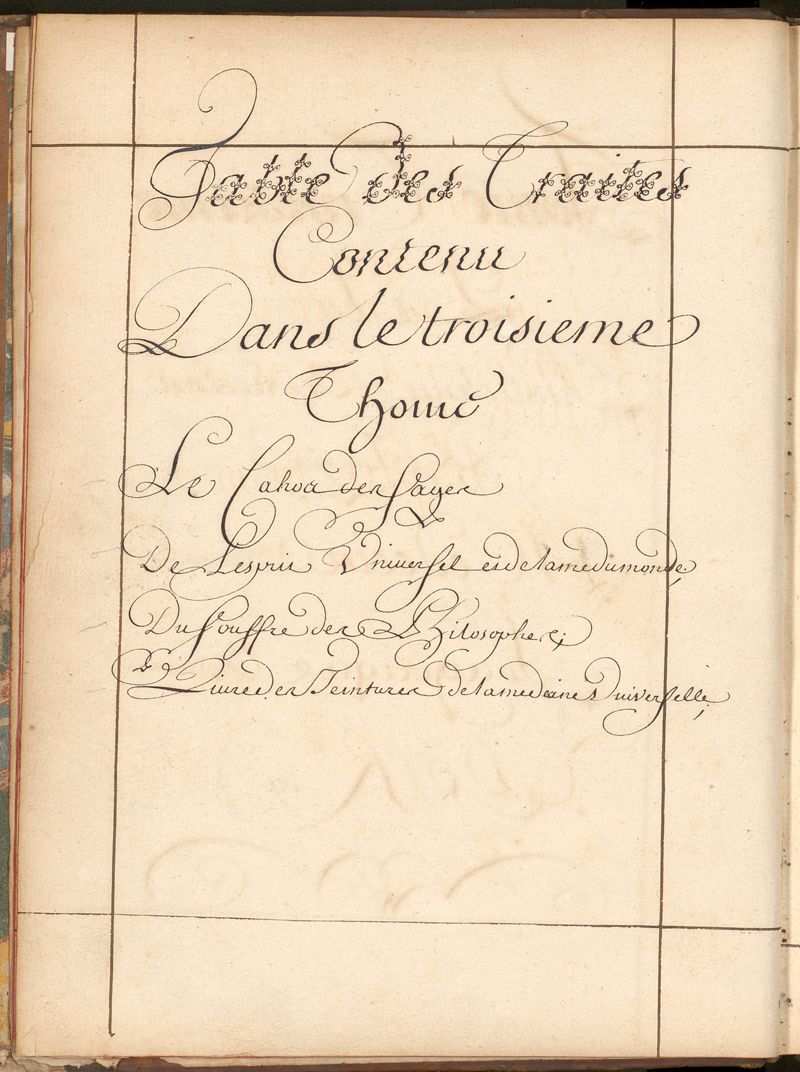 Table des Traites
Contenu
Dans le troisieme
Thome
Le Cahos des sages
De Lesprit Vniuersel et de lame du monde,
Du souffre des Philosophes;
Le Liure des Teintures de la medecine Vniverselle;